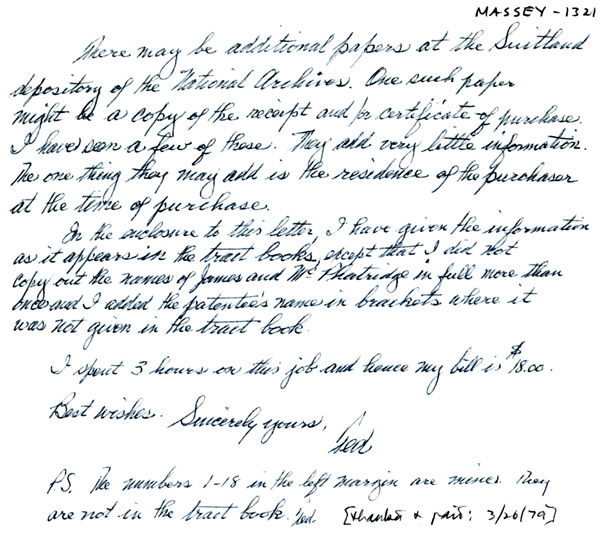 MASSEY - 1321
There may be additional papers at the Suitland
depository of the National Archives. One such paper
might be a copy of the receipt and/or certificate of purchase.
I have seen a few of these. They add very little information.
The one thing they may add is the residence of the purchaser
at the time of purchase.
In the enclosure to this letter, I have given the information
as it appears in the tract books, except that I did not
copy out the names of James and Wm Phatridge in full more than
once and I added the patentee's name in brackets where it
was not given in the tract book.
I spent 3 hours on this job and hence my bill is $18.00.
Best wishes. Sincerely yours,
Ted
P.S. The numbers 1-18 in the left margin are mines. They
are not in the tract book. Ted. [thanked & paid: 3/26/79]